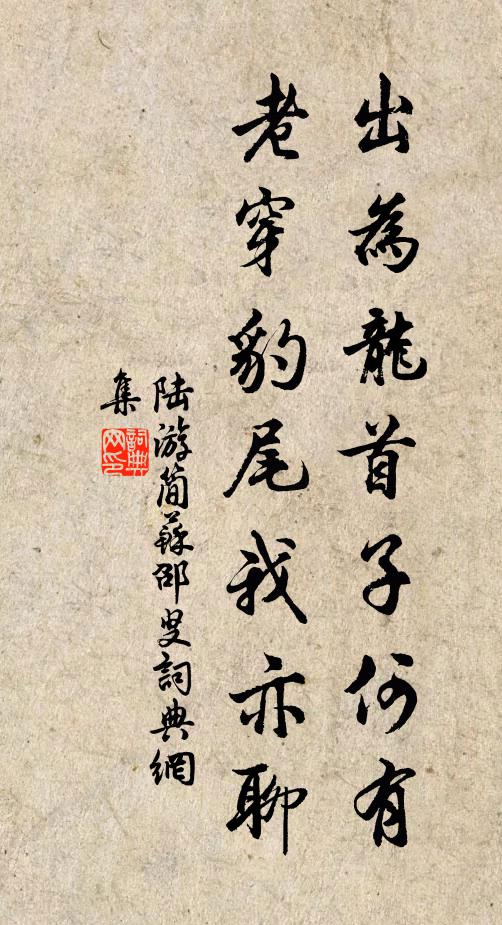 出為龍首子何有
老穿豹尾我亦聊
陸游簡蘇邵叟詞典網
集
詞典網印